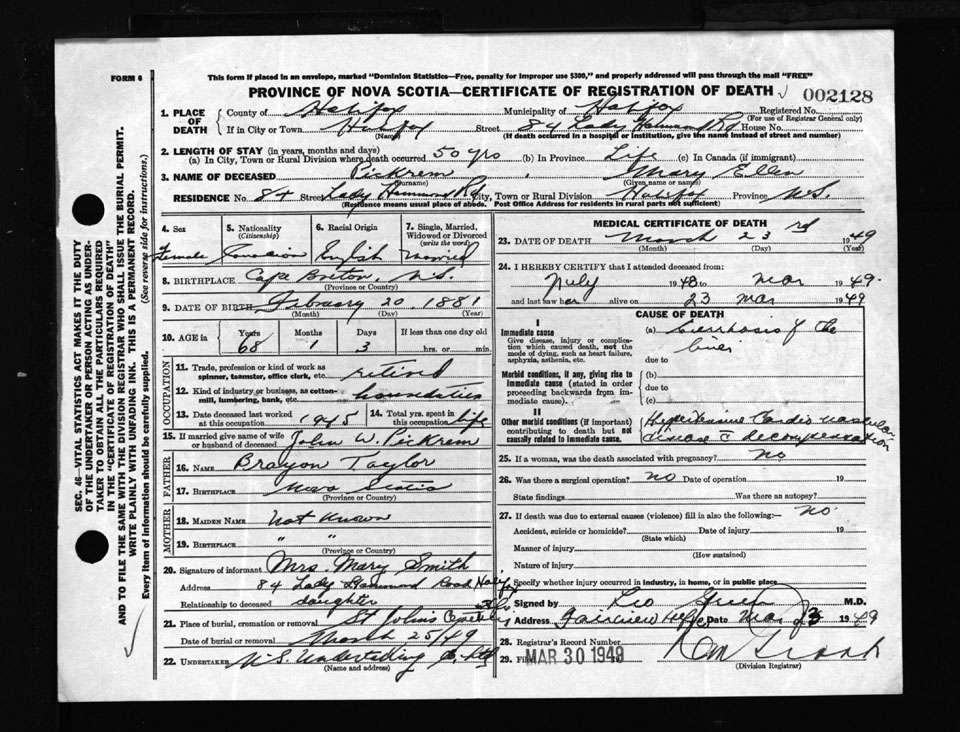 FORM 6
This form if placed in an envelope, marked "Dominion Statistics—Free, penalty for improper use $300," and properly addressed will pass through the mail "FREE"
PROVINCE OF NOVA SCOTIA—CERTIFICATE OF REGISTRATION OF DEATH
002128
1. PLACE OF DEATH
County of Halifax Municipality of Halifax Registered No.
(For use of Registrar General only)
If in City or Town Halifax Street 84 Lady Hammond Rd House No.
(Name) (If death occurred in a hospital or institution, give the name instead of street and number)
2. LENGTH OF STAY (in years, months and days)
(a) In City, Town or Rural Division where death occurred 50 yrs (b) In Province Life (c) In Canada (if immigrant)
3. NAME OF DECEASED Pickrem, Mary Ellen
(Surname) (Given name or names)
RESIDENCE No. 84 Street Lady Hammond Rd City, Town or Rural Division Halifax Province N.S.
(Residence means usual place of abode. Post Office Address for residents in rural parts not sufficient)
4. Sex
Female
5. Nationality
(Citizenship)
Canadian
6. Racial Origin
English
7. Single, Married, Widowed or Divorced
(write the word)
Married
8. BIRTHPLACE Cape Breton, N.S.
(Province or Country)
9. DATE OF BIRTH February 20 1881
(Month) (Day) (Year)
10. AGE in Years Months Days If less than one day old
68 1 3 hrs. or min.
OCCUPATION
11. Trade, profession or kind of work as
spinner, teamster, office clerk, etc. retired
12. Kind of industry or business, as cotton-
mill, lumbering, bank, etc.
13. Date deceased last worked
at this occupation 1945
14. Total yrs. spent in
this occupation life
15. If married give name of wife
or husband of deceased John W. Pickrem
FATHER
16. NAME Taylor
17. BIRTHPLACE Nova Scotia
(Province or Country)
MOTHER
18. MAIDEN NAME Not Known
19. BIRTHPLACE " "
(Province or Country)
20. Signature of informant Mrs. Mary Smith
Address 84 Lady Hammond Road Halifax
Relationship to deceased daughter
21. Place of burial, cremation or removal St Johns Cemetery
Date of burial or removal March 25/49
22. UNDERTAKER N.S. Undertaking Co. Ltd
(Name and address)
MEDICAL CERTIFICATE OF DEATH
23. DATE OF DEATH March 23rd 1949
(Month) (Day) (Year)
24. I HEREBY CERTIFY that I attended deceased from:
July 1948 to Mar 1949.
and last saw her alive on 23 Mar 1949
CAUSE OF DEATH
I
Immediate cause
Give disease, injury or complication which caused death, not the mode of dying, such as heart failure, asphyxia, asthenia, etc.
(a) Cirrhosis of the liver
due to
Morbid conditions, if any, giving rise to immediate cause (stated in order proceeding backwards from immediate cause).
(b)
due to
(c)
II
Other morbid conditions (if important) contributing to death but not causally related to immediate cause.
Hypertensive Cardio vascular disease c decompensation
25. If a woman, was the death associated with pregnancy? No
26. Was there a surgical operation? no Date of operation 19
State findings Was there an autopsy?
27. If death was due to external causes (violence) fill in also the following:— no.
Accident, suicide or homicide? Date of injury 19
(State which)
Manner of injury
(How sustained)
Nature of injury
Specify whether injury occurred in industry, in home, or in public place
Signed by Leo Green M.D.
Address Fairview Hfx Date Mar 23 1949
28. Registrar's Record Number
29. Filed MAR 30 1949
(Division Registrar)
SEC. 46—VITAL STATISTICS ACT MAKES IT THE DUTY
OF THE UNDERTAKER OR PERSON ACTING AS UNDER-
TAKER TO OBTAIN ALL THE PARTICULARS REQUIRED
IN THE "CERTIFICATE OF REGISTRATION OF DEATH"
AND TO FILE THE SAME WITH THE DIVISION REGISTRAR WHO SHALL ISSUE THE BURIAL PERMIT.
WRITE PLAINLY WITH UNFADING INK. THIS IS A PERMANENT RECORD.
Every item of information should be carefully supplied. (See reverse side for instructions.)